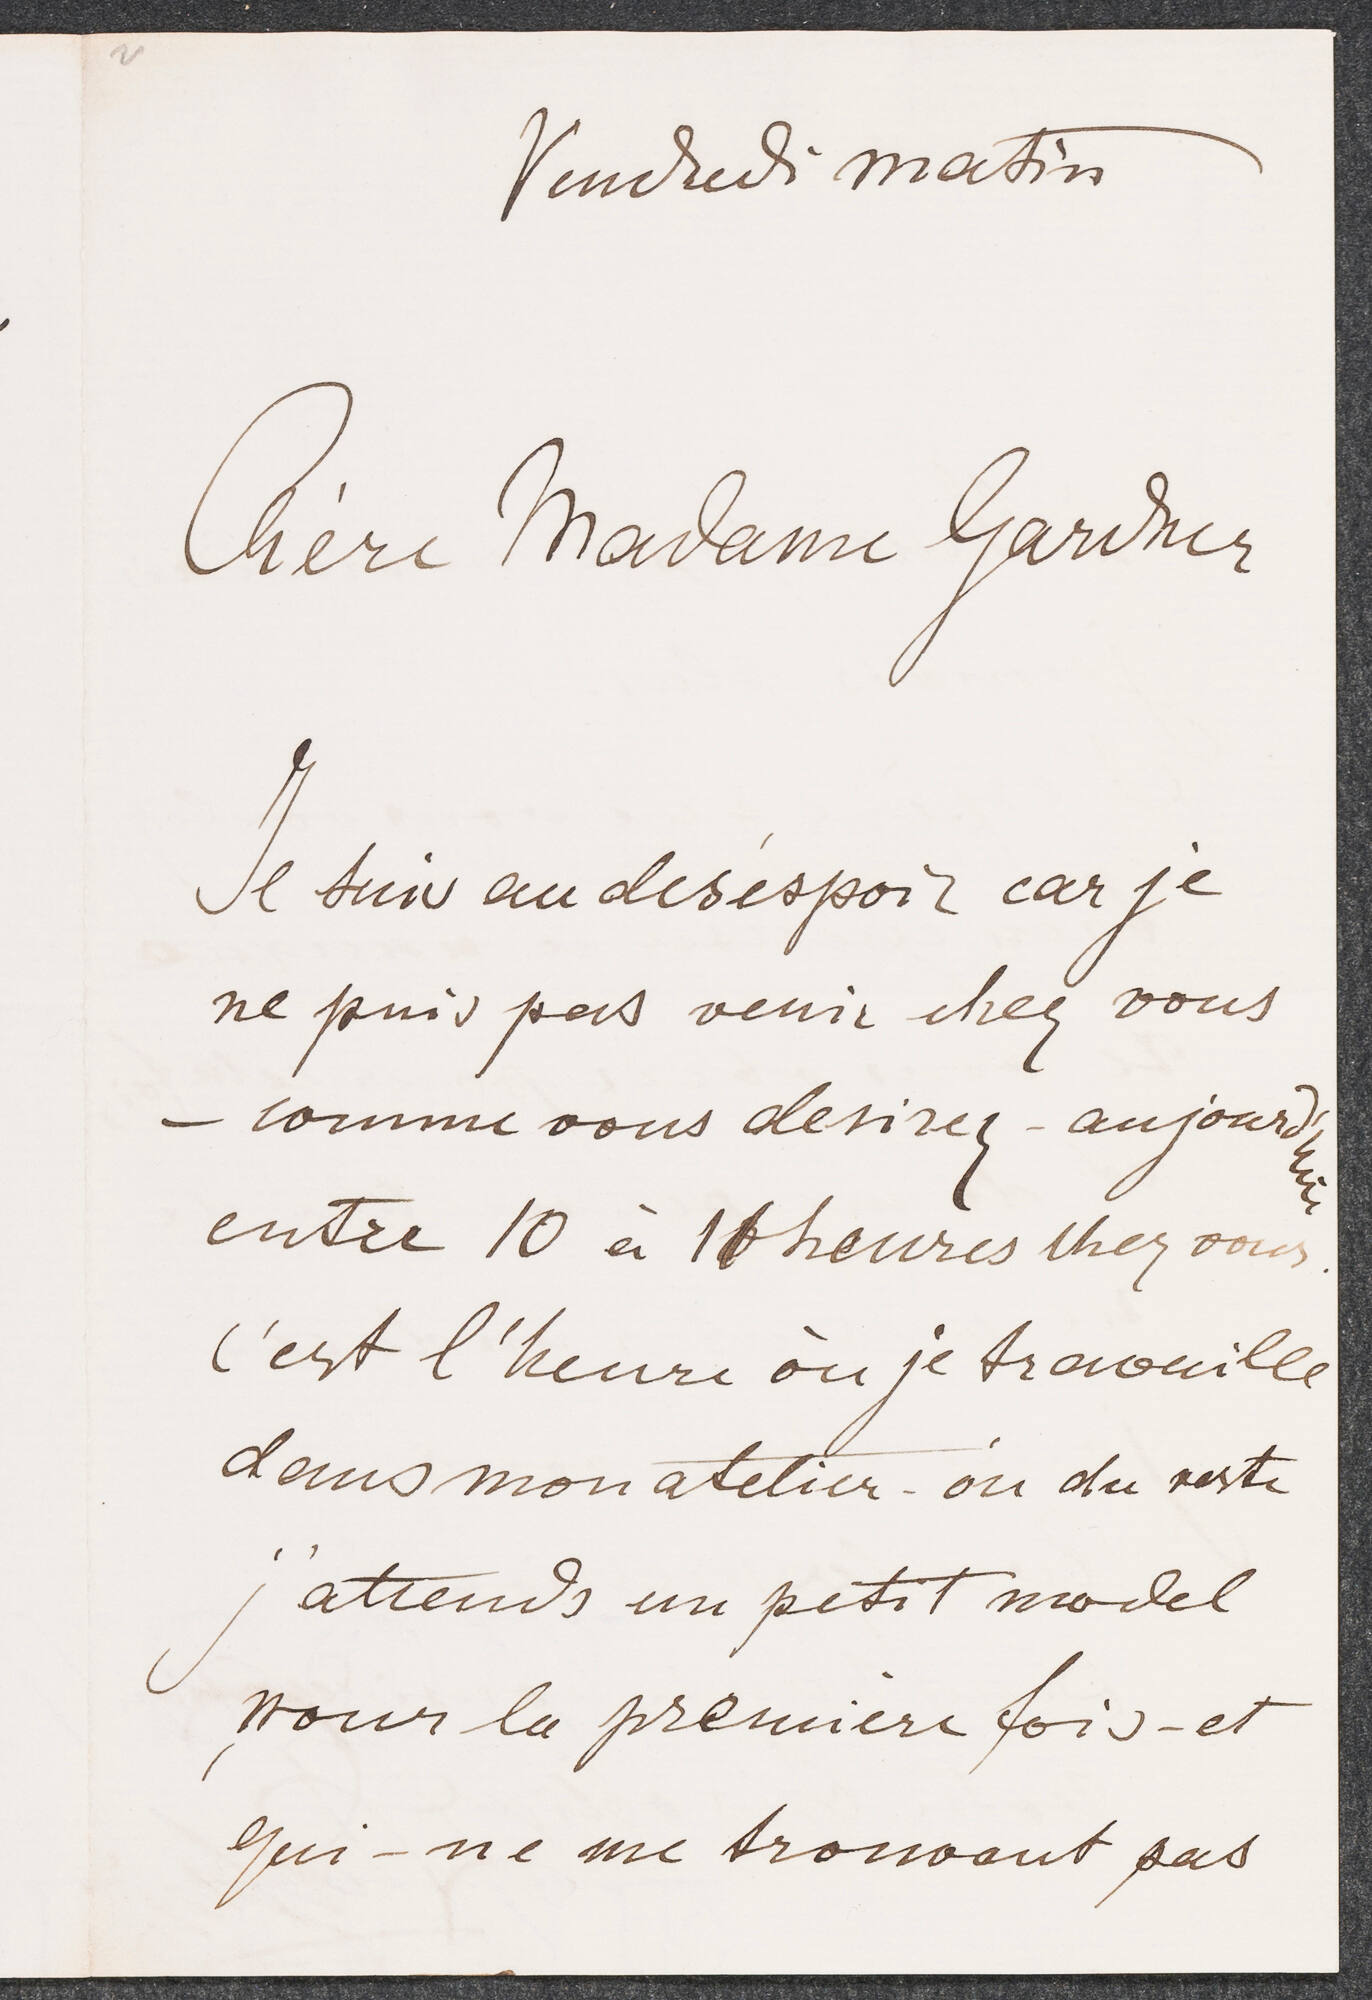 2
Vendredi matin
Chère Madame Gardner
Je suis au deséspoir car je
ne puis pas venir chez vous
– comme vous desirez – aujourd'hui
entre 10 à 11 heures chez vous.
c'est l'heure òu je travouille
dans mon atelier – òu du reste
j'attends un petit model
pour la première fois – et
qui – ne me trouvant pas